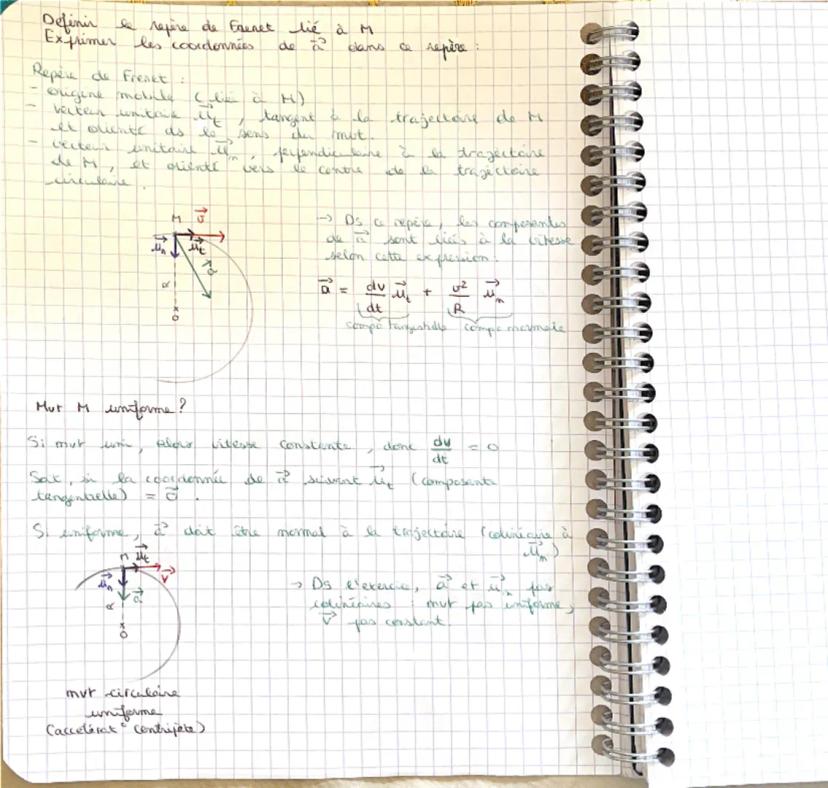 Définir le repère de Frenet lié à M
Exprimer les coordonnées de a⃗ dans ce repère :
Repère de Frenet :
- origine mobile (lié à M)
- vecteur unitaire u⃗t, tangent à la trajectoire de M
et orienté ds le sens du mvt.
- vecteur unitaire u⃗n, perpendiculaire à la trajectoire
de M, et orienté vers le centre de la trajectoire
circulaire.
M v⃗
u⃗n u⃗t
a⃗
R
O
→ Ds ce repère, les composantes
de a⃗ sont liés à la vitesse
selon cette expression :
a⃗ = dv/dt u⃗t + v²/R u⃗n
compo tangentielle compo normale
Mvt M uniforme ?
Si mvt uni, alors vitesse constante, donc dv/dt = 0
Soit, si la coordonnée de a⃗ suivant u⃗t (composante
tangentielle) = 0⃗.
Si uniforme, a⃗ doit être normal à la trajectoire (colinéaire à
u⃗n)
M u⃗t
u⃗n v⃗
a⃗
R
O
→ Ds l'exercice, a⃗ et u⃗n pas
colinéaires : mvt pas uniforme,
v⃗ pas constant.
mvt circulaire
uniforme
(accelérat° centripète)